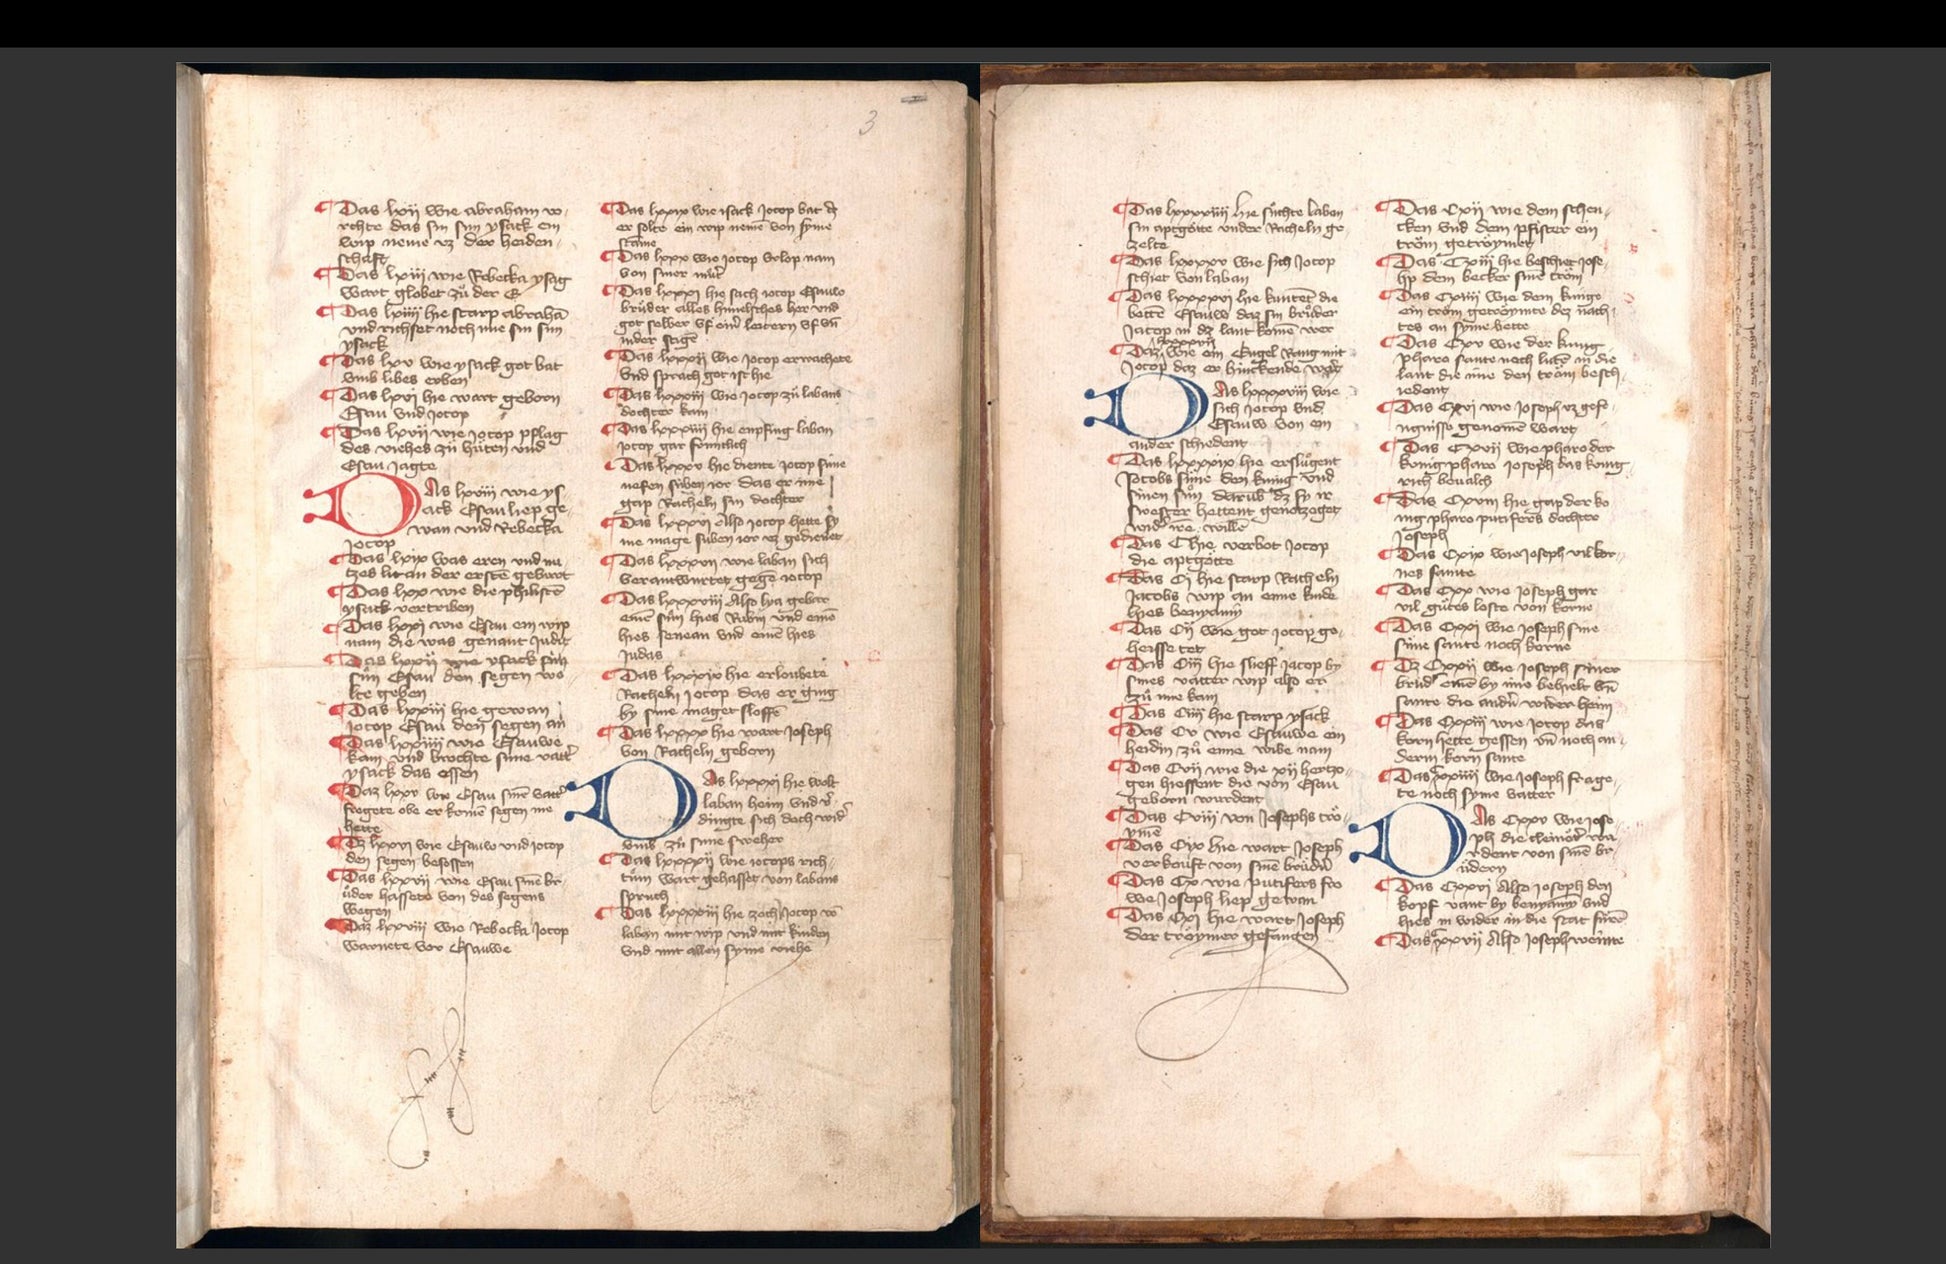 3
Das lxij wie abraham vo-
rchte das sin sun ysack ein
wip neme vz der heiden-
schaft
Das lxiij wie Rebecka ysag
wart globet zů der E
Das lxiiij hie starp abrahā
vnd richset noch ime sin sun
ysack
Das lxv wie ysack got bat
vmb libes erben
Das lxvj hie wart geborn
Esau vnd jocop
Das lxvij wie jocop pflag
des viehes zů hůten vnd
Esau jagte
DAs lxviij wie ys-
ack Esau liep ge-
wan vnd Rebecka
jocop
Das lxix was eren vnd nu
tzes lit an der ersten geburt
Das lxx wie die philisten
ysack vertriben
Das lxxj wie Esau ein wip
nam die was genant Judit
Das lxxij wie ysack sim
sun Esau den segen wo-
lte geben
Das lxxiij hie gewan
jocop Esau den segen an
Das lxxiiij wie Esauwe
kam vnd brochte sime vatt'
ysack das essen
Daz lxxv wie Esau sinē vatt'
fregete obe er keinē segen me
hette
Dz lxxvj wie Esauw vnd jocop
den segen besossen
Das lxxvij wie Esau sinē br-
ůder hassete von des segens
wegen
Daz lxxviij wie Rebecka jocop
warnete vor Esauwe
Das lxxix wie isack jocop bat dz
er solte ein wip nemē von syme
stame
Das lxxx wie jocop vrlop nam
von siner můt'
Das lxxxj hie sach jocop Esauw
brůder alles himelsches her vnd
got selber vf ein' leitern vf vn
nider stigē
Das lxxxij wie jocop erwachete
vnd sprach got ist hie
Das lxxxiij wie jocop zů labans
dochter kam
Das lxxxiiij hie enpfing laban
jocop gar frůntlich
Das lxxxv hie diente jocop sime
nefen siben jor das er ime
gap Racheln sin dochter
Das lxxxvj Also jocop hette sy
me mage siben jor vz gedienet
Das lxxxvij wie laban sich
verantwurtet gegē jocop
Das lxxxviij Also lya gebar
einē sůn hies Rubin vnd einē
hies semean vnd einē hies
Judas
Das lxxxix hie erloubete
Racheln jocop das er ging
by sime maget sloffē
Das lxxxx hie wart Joseph
von Racheln geborn
DAs lxxxxj hie wolt
laban heim vnd v'
dingte sich doch wid'
vmb zů sime sweher
Das lxxxxij wie jocops rich-
tům wart gehasset von labans
spruch
Das lxxxxiij hie zoch Jocop vō
laban mit wip vnd mit kinden
vnd mit allen syme viehe
Das lxxxxiiij hie sůchte laben
sin aptgötte vnder Racheln ge-
zelte
Das lxxxxv wie sich Jocop
schiet von laban
Das lxxxxvj hie kuntēt die
bottē Esauw daz sin brůder
Jacop in dz lant komē wer
lxxxxvij
Daz wie ein Engel Rang mit
Jocop daz er hinckende wart
DAs lxxxxviij wie
sich Jocop vnd
Esauw von ein
ander schiedent
Das lxxxxix hie erslůgent
Jocobs sůne den kunig vnd
sinen sůn darub dz sy ir
swester hettent genotzoget
wid' irē willē
Das C hie verbot Jocop
die aptgötte
Das Cj hie starp Racheln
Jacobs wip an eime kinde
hies benyamin
Das Cij wie got jocop ge-
heisse tet
Das Ciij hie slieff Jacop by
sines vatter wip also er
zů ime kam
Das Ciiij hie starp ysack
Das Cv wie Esauwe ein
heidin zů eime wibe nam
Das Cvij wie die xij hertzo-
gen hiessent die von Esau
geborn wurdent
Das Cviij von Josephs trö-
ymē
Das Cix hie wart Joseph
verkouft von sinē brůdn
Das Cx wie putifers fro
we Joseph liep gewan
Das Cxj hie wart Joseph
der tröymer gefangen
Das Cxij wie dem schen-
cken vnd dem pfister ein
tröm getröymet
Das Cxiij hie beschiet jose-
hp dem becker sinē tröm
Das Cxiiij wie dem kunge
ein tröm getröymte dez nach-
tes an syme bette
Das Cxv wie der kung
pharo sante noch lutē in die
lant die ime den tröm besch-
iedent
Das Cxvj wie Joseph vz gefe-
ngnisse genomē wart
Das Cxvij wie pharo der
konig pharo Joseph das konig-
rich bevalch
Das Cxviij hie gap der ko
nig pharo putifers dochter
Joseph
Das Cxix wie Joseph vil kor-
nes samte
Das Cxx wie Joseph gar
vil gůtes loste von korne
Das Cxxj wie Joseph sine
sůne sante noch korne
Dz Cxxij wie Joseph siner
brůd' einē by ime behielt vn
sante die andn wider heim
Das Cxxiij wie Jocop das
korn hette gessen vn noch an-
derm korn sante
Das Cxxiiij wie Joseph frage-
te noch syme vatter
DAs Cxxv wie jose-
ph die cleinöt' wu-
rdent von sinē br-
ůdern
Das Cxxvj Also joseph den
kopf vant by benyamy vnd
hies in wider in die stat fůrē
Das Cxxvij Also Joseph weinte